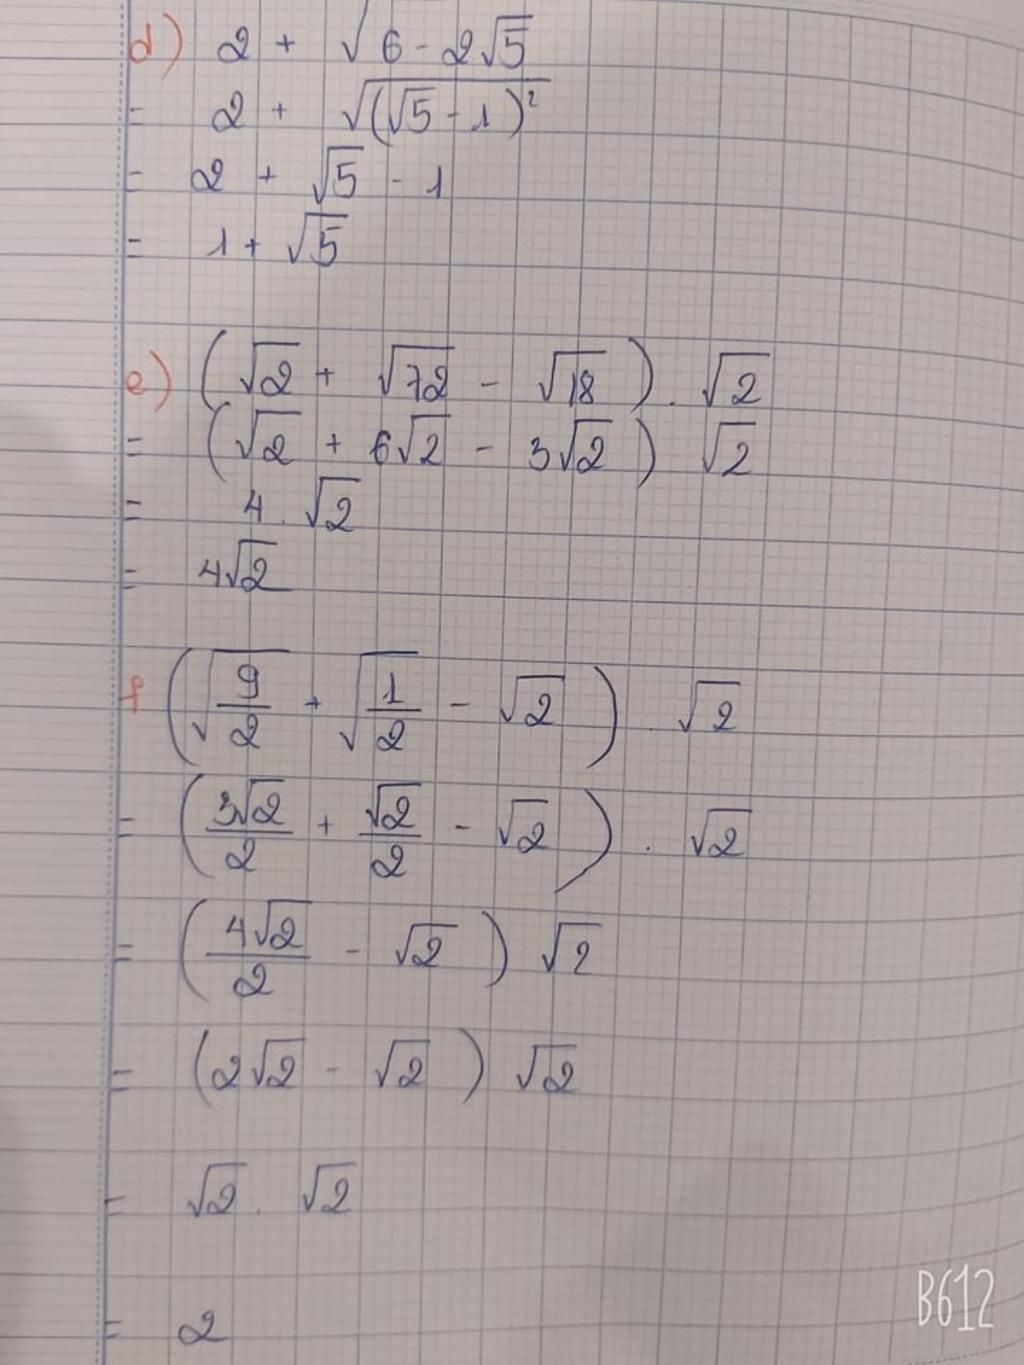 d) 2 + √6 - 2√5
= 2 + √(√5 - 1)²
= 2 + √5 - 1
= 1 + √5
e) (√2 + √72 - √18) . √2
= (√2 + 6√2 - 3√2) √2
= 4 . √2
= 4√2
f (√9/2 + √1/2 - √2) . √2
= (3√2/2 + √2/2 - √2) . √2
= (4√2/2 - √2) √2
= (2√2 - √2) √2
= √2 . √2
= 2
B612